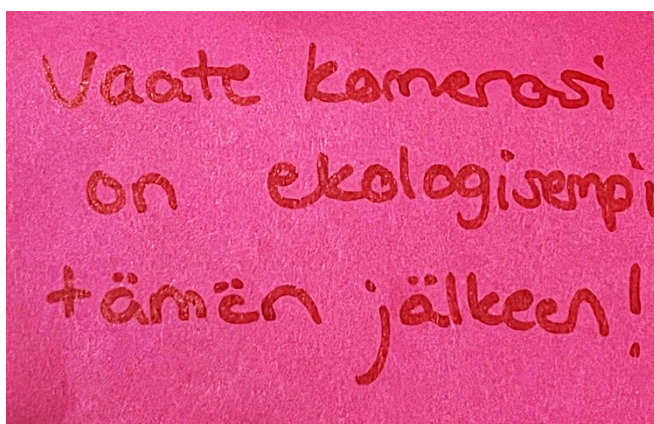 Vaate komerosi
on ekologisempi
tämän jälkeen!